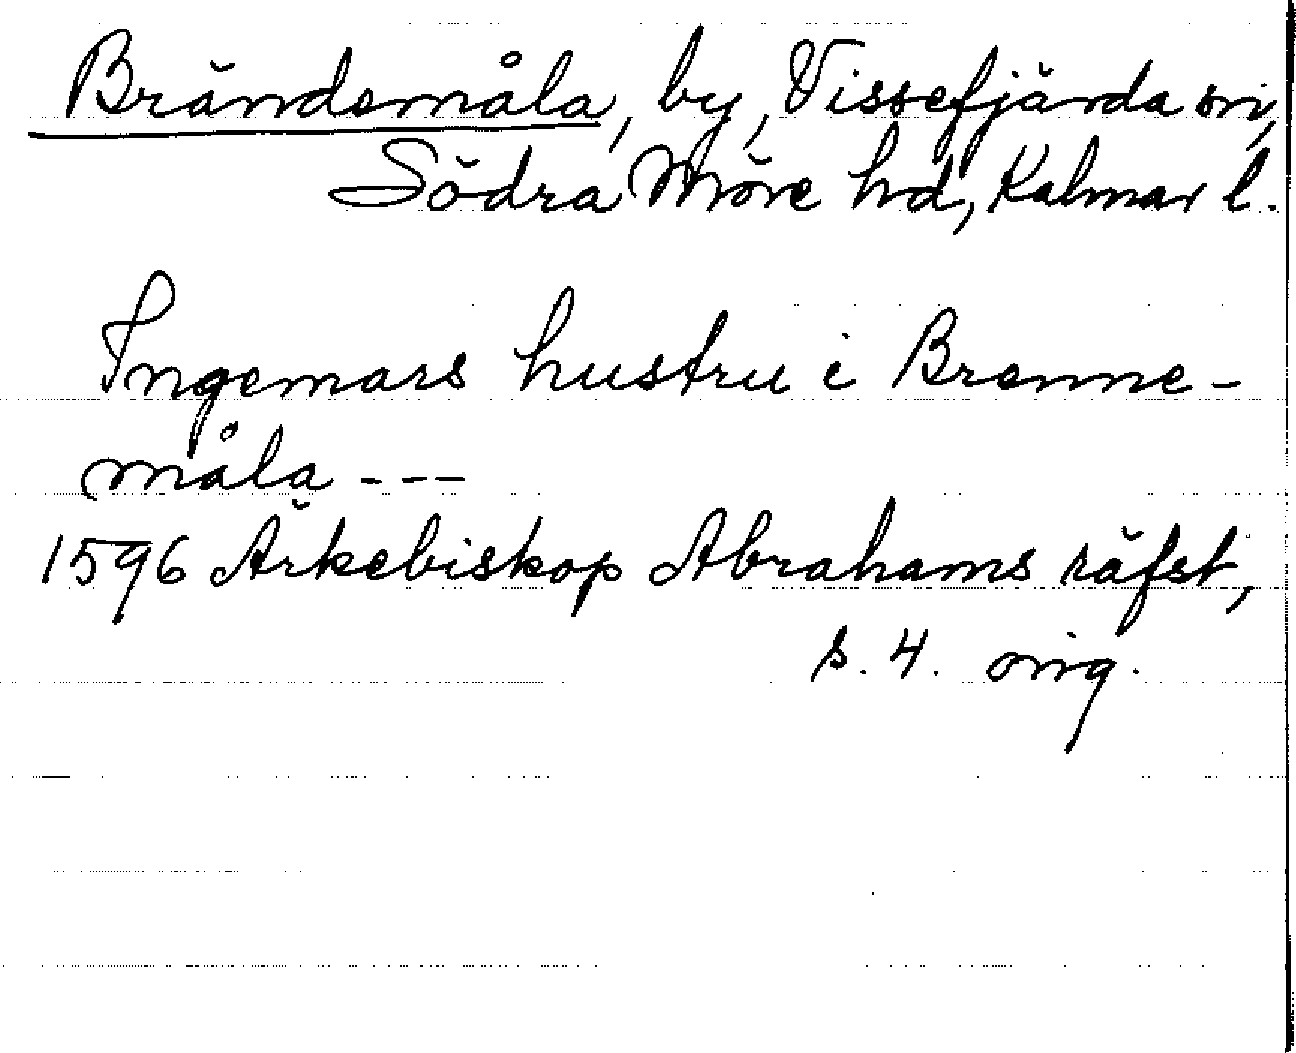 Brändemåla, by, Vissefjärda sn,
Södra Möre hd, Kalmar l.
Ingemars hustru i Brenne-
måla ---
1596 Ärkebiskop Abrahams räfst,
s. 4. orig.